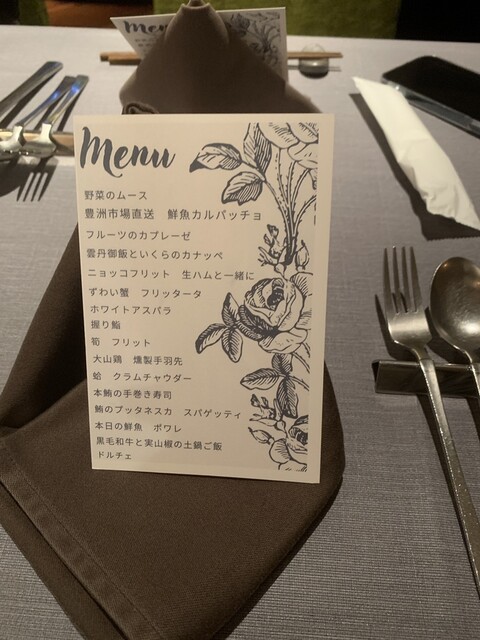 Menu
Menu
野菜のムース
豊洲市場直送　鮮魚カルパッチョ
フルーツのカプレーゼ
雲丹御飯といくらのカナッペ
ニョッコフリット　生ハムと一緒に
ずわい蟹　フリッタータ
ホワイトアスパラ
握り鮨
筍　フリット
大山鶏　燻製手羽先
蛤　クラムチャウダー
本鮪の手巻き寿司
鮪のプッタネスカ　スパゲッティ
本日の鮮魚　ポワレ
黒毛和牛と実山椒の土鍋ご飯
ドルチェ